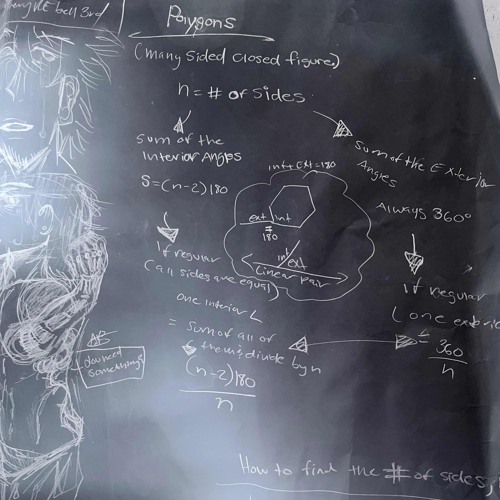 bell 3rd
Polygons
(many sided closed figure)
n = # of sides
Sum of the
Interior Angles
S = (n-2)180
If regular
(all sides are equal)
one interior L
= sum of all of
them ; divide by n
(n-2)180
n
int + Ext = 180
ext int
=
180
int ext
Linear pair
Sum of the Exterior
Angles
Always 360°
If regular
1 one exterior
=
360
n
AB
do u need
something?
How to find the # of sides,